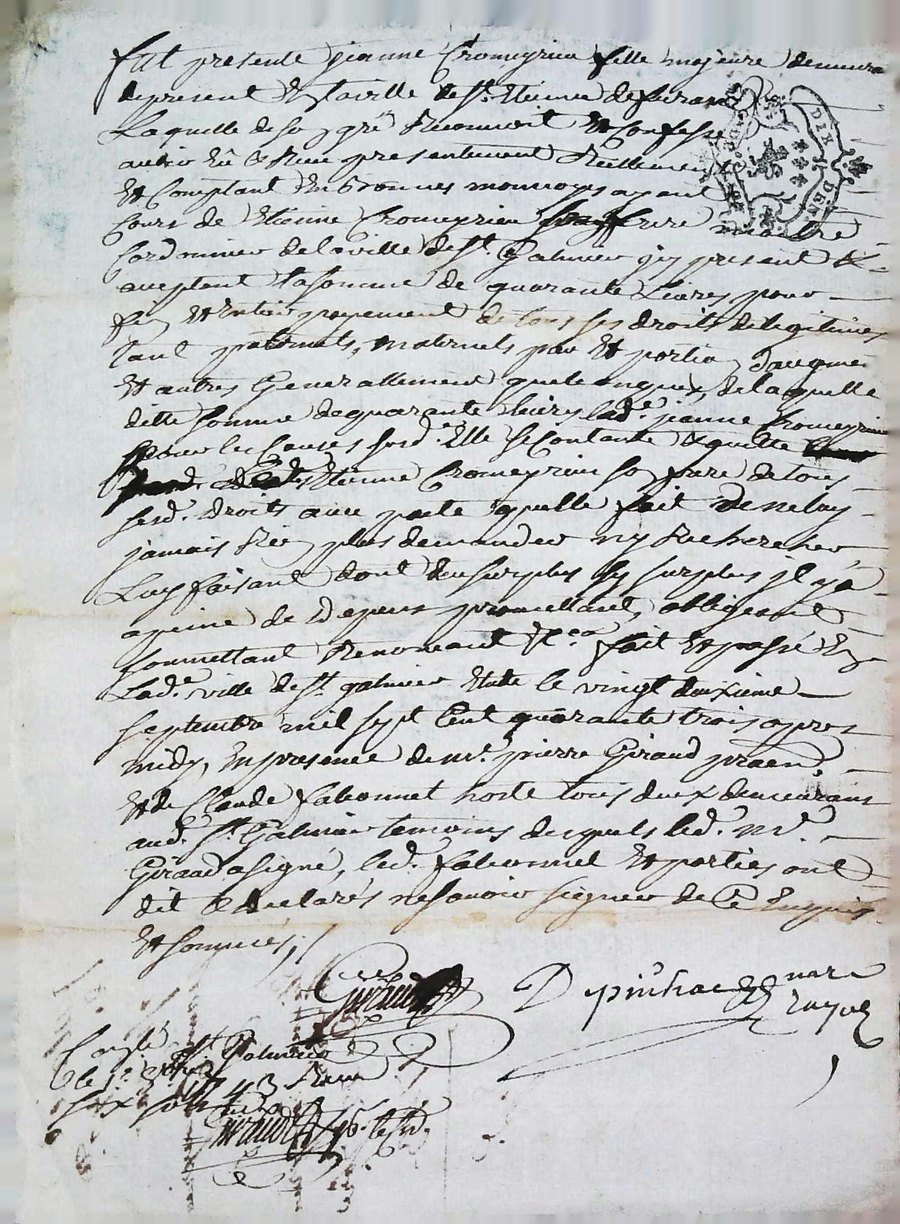 fut presente jeanne Cromeyrieu fille majeure demeura
depresent En la ville de St. Etienne de
Laquelle de son gré Reconnoit Et Confesse
avoir Eû & Receu presentement Reellement
Et Comptant En bonnes monnoyes ayant
Cours de Etienne Cromeyrieu son frere maitre
Cordonnier de la ville de St. Galmier icy present &
acceptant la somme de quarante Livres pour
fin Et Entier payement de tous ses droits de legitimes
tant paternels, maternels part Et portion d'augment
Et autres Generallement quelconques, de laquelle
ditte somme de quarante livres lade. jeanne Cromeyrieu
pour les Causes susd. Elle se Contante & quitte
Etienne Cromeyrieu son frere de tous
sesd. droits avec pacte quelle fait de ne luy
jamais Rien plus demander ny Rechercher
Luy faisant dont du surplus sy surplus il y a
a peine de Depens promettant, obligeant
soumettant Renonceant &ca. fait Et passé En
Lade. ville de St. galmier Etude le vingt deuxieme
septembre mil sept Cent quarante trois apres
midy, En presence de mr. pierre Giraud praen.
Et de Claude fabonnet hoste tous deux demeurants
aud. St. Galmier temoins desquels led. mr.
Giraud a signé, led. fabonnet Et parties ont
dit & declarés ne savoir signer de Ce Enquis
Et sommés, /
Giraud Depinhac nore
royal
Conllé a St Galmier
le 1er 43 Receu
six sols
DIX DEN.